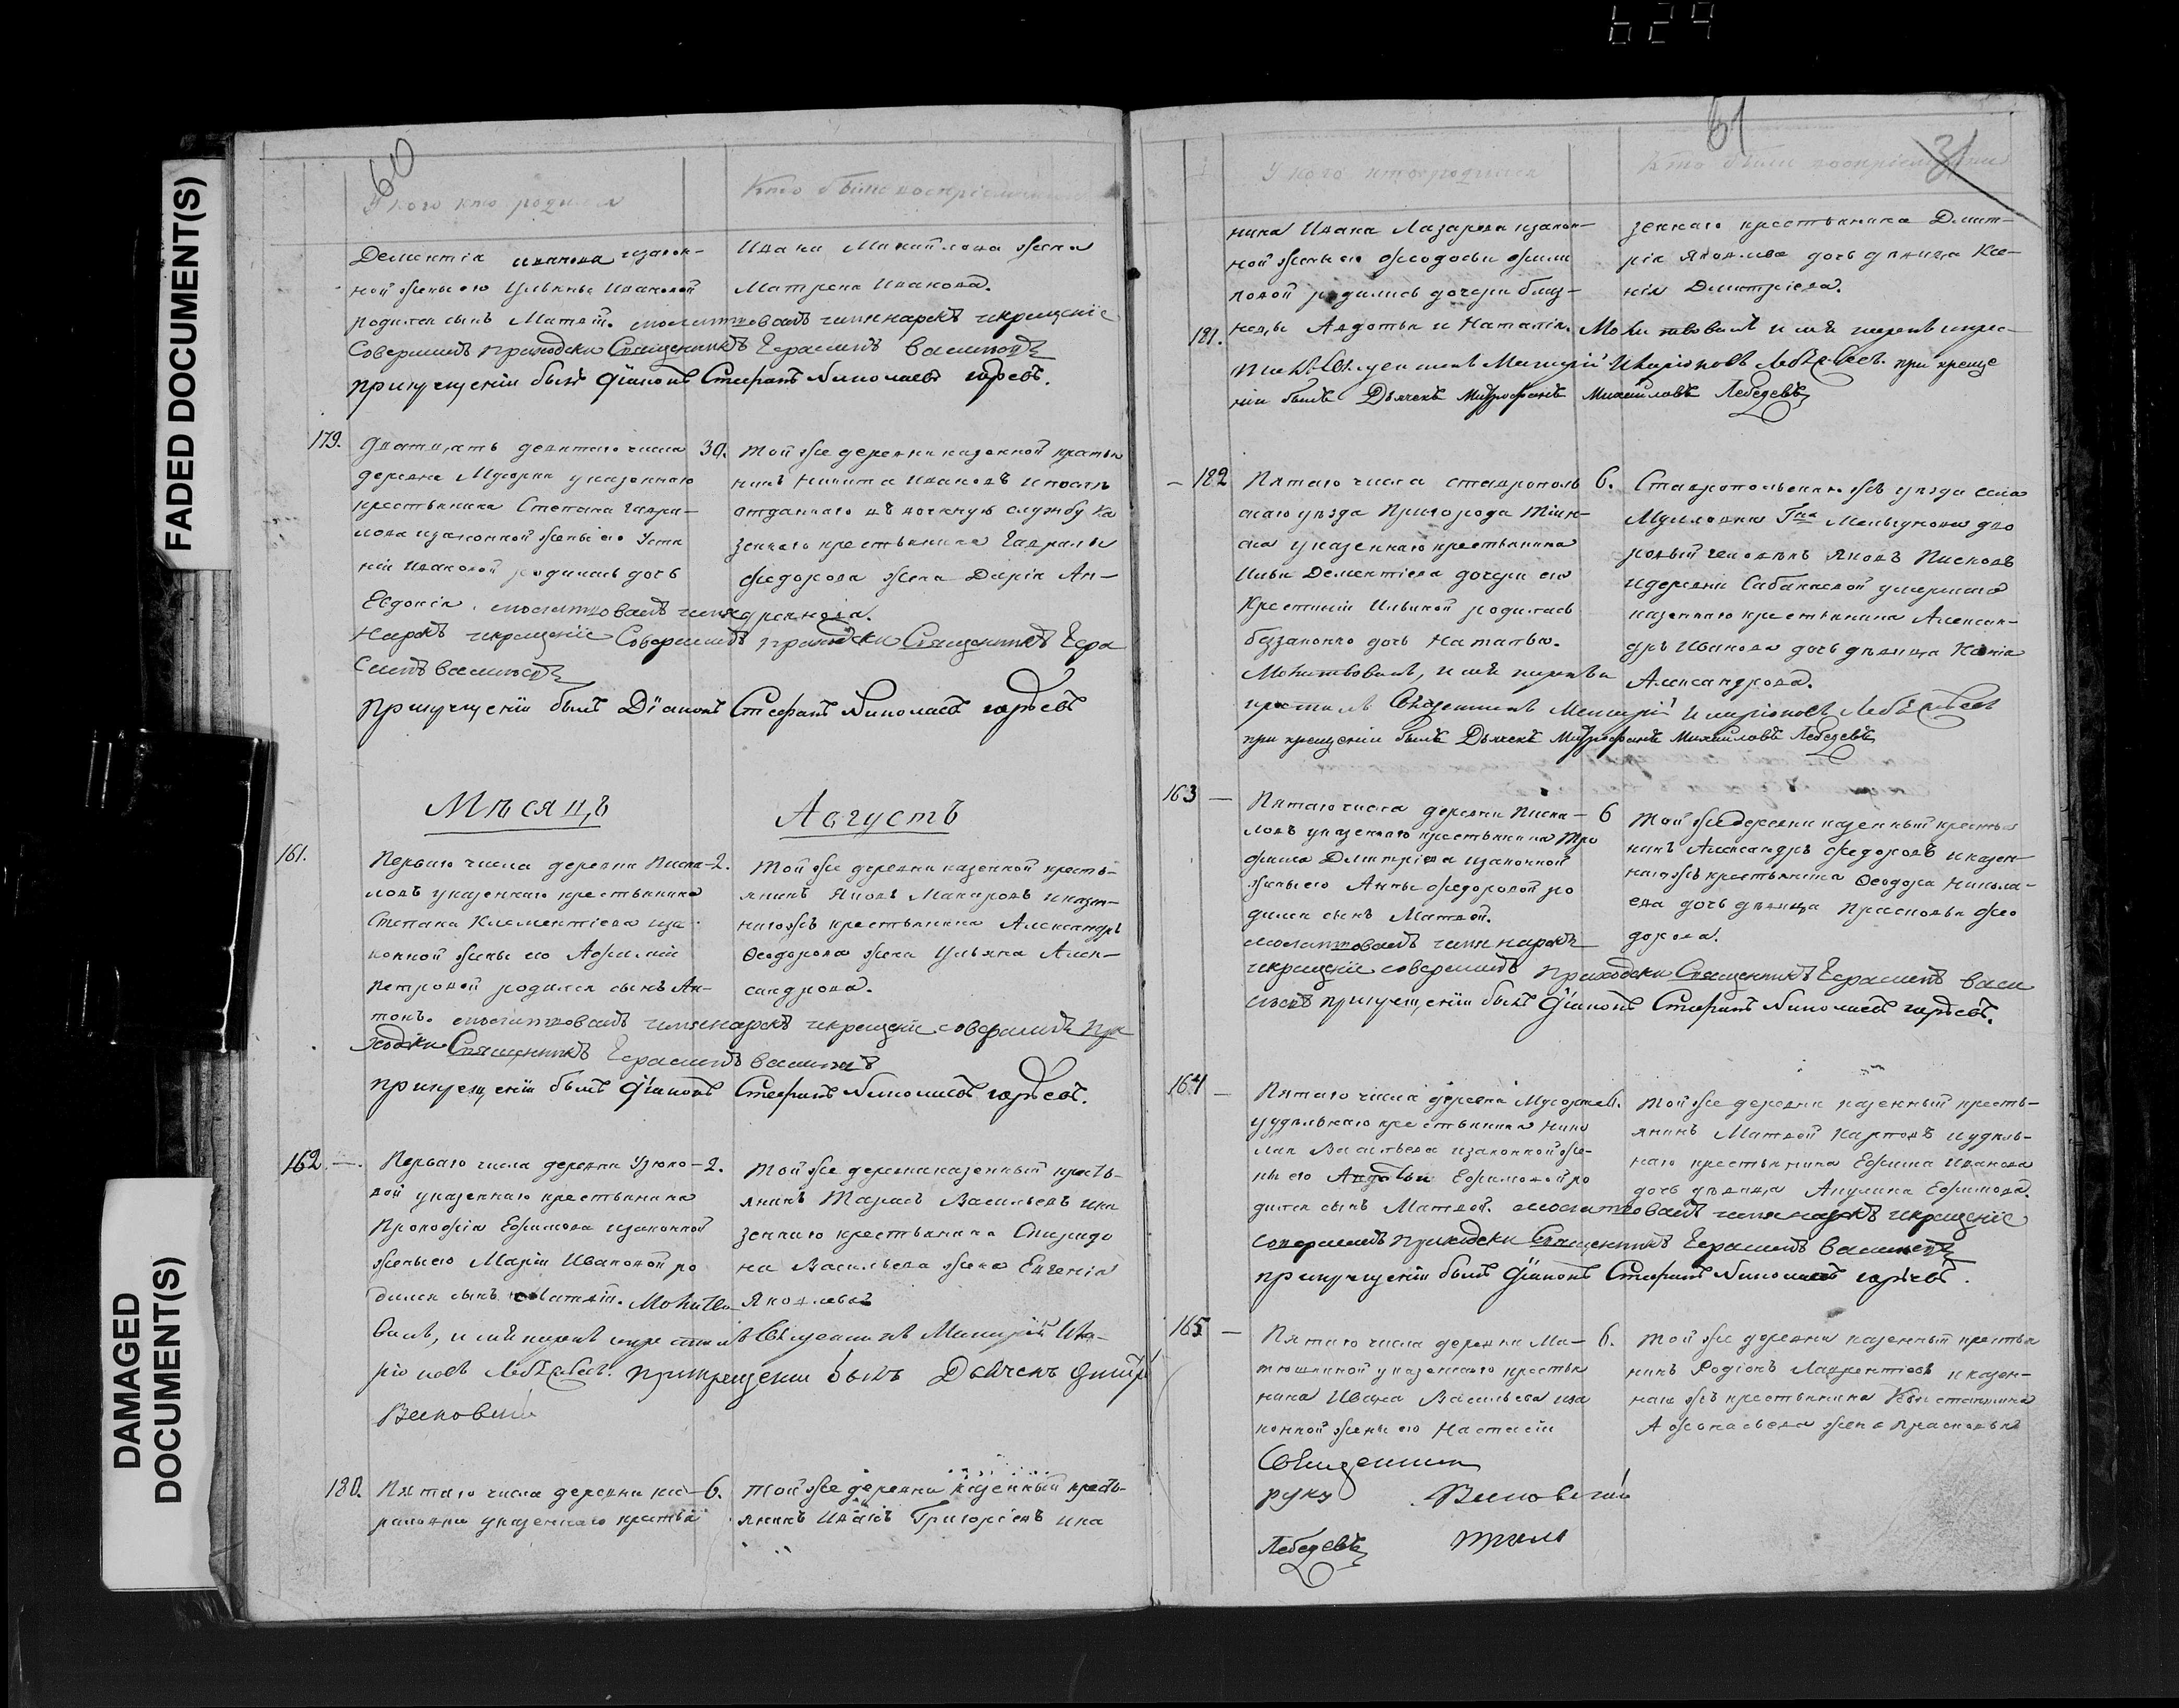 624
FADED DOCUMENT(S)
DAMAGED
DOCUMENT(S)
60
У кого кто родился
Кто были воспріемники
Дементія Иванова изакон-
ной жены его Ульяны Ивановой
родился сынъ Матвѣй. молитвовалъ имя нарекъ икрещеніе
Совершилъ приходски Священникъ Герасимъ Васильевъ
прикрещеніи былъ Діаконъ Стефанъ Николаевъ
Ивана Михайлова жена
Матрена Иванова.
179.
Дватцать девятаго числа
деревни Мусорки указеннаго
крестьянина Степана Гаври-
лова изаконной жены его Усти
ніи Ивановой родилась дочь
Евдокія. молитвовалъ имя
нарекъ икрещеніе Совершилъ приходски Священникъ Гера
симъ Васильевъ
прикрещеніи былъ Діаконъ Стефанъ Николаевъ
30.
той же деревни казенной крестья
нинъ Никита Ивановъ
отданнаго въ военную службу ка
зеннаго крестьянина Гаврилы
Федорова жена Дарія Ан-
дреянова.
Мѣсяцъ
Августъ
161.
Перваго числа деревни Писка-
ловъ указеннаго крестьянина
Степана Климентіева иза
конной жены его Афиміи
Петровой родился сынъ Ан-
тонъ. молитвовалъ имя нарекъ икрещеніе совершилъ при
ходски Священникъ Герасимъ Васильевъ
прикрещеніи былъ Діаконъ Стефанъ Николаевъ
2.
той же деревни казенной кресть-
янинъ Яковъ Макаровъ иказен-
нагожъ крестьянина Александръ
Феодорова жена Ульяна Алек-
сандрова.
162.
Перваго числа деревни Узюко-
вой указеннаго крестьянина
Прокофія Ефимова изаконной
жены его Маріи Ивановой ро
дился сынъ Матвѣй. Молитво
валъ, имя нарекъ икрестилъ Священникъ Ила-
ріоновъ Лебедевъ. прикрещеніи былъ Дьячекъ Дмитр
2.
той же деревни казенный кресть-
янинъ Тарасъ Васильевъ ика
зеннаго крестьянина Спиридо
на Васильева жена Евгенія
Яковлева
180.
Пятаго числа деревни
указеннаго крестья
6.
той же деревни казенный кресть-
янинъ Иванъ Григорьевъ ика
61
31
У кого кто родился
Кто были воспріемники
нина Ивана Лазарева изакон-
ной жены его Феодосьи Фили
повой родились дочери близ-
нецы Авдотья и Наталія. Молитвовалъ имя нарекъ икрес-
тилъ Священникъ Иларіоновъ Лебедевъ. при креще
ніи былъ Дьячекъ Митрофанъ Михайловъ Лебедевъ
181.
зеннаго крестьянина Дмит-
рія Яковлева дочь дѣвица Ксе-
нія Дмитріева.
182
Пятаго числа ставрополь
скаго уѣзда Пригорода Тіин-
ска указеннаго крестьянина
Ильи Дементіева дочери его
Ильиной родилась
беззаконно дочь Наталья.
Молитвовалъ, имя нарекъ и
крестилъ Священникъ Иларіоновъ Лебедевъ
при крещеніи былъ Дьячекъ Митрофанъ Михайловъ Лебедевъ
6.
Ставропольскаго жъ уѣзда села
Мусловки Гна Мельгунова дво
ровый человѣкъ Яковъ
идеревни Сабакаевой умершаго
казеннаго крестьянина Алексан-
дръ Иванова дочь дѣвица
Александрова.
163
Пятаго числа деревни Писка-
ловъ указеннаго крестьянина Тро
фима Дмитріева изаконной
жены его Анны Федоровой ро
дился сынъ Матвей.
молитвовалъ имя нарекъ
икрещеніе совершилъ Приходски Священникъ Герасимъ Васи
льевъ прикрещеніи былъ Діаконъ Стефанъ Николаевъ
6
той же деревни казенный крестья
нинъ Александръ Федоровъ иказен-
нагожъ крестьянина Феодора Никола-
ева дочь дѣвица Прасковья Фео
дорова.
164
Пятаго числа деревни Мусорки
уудѣльнаго крестьянина Нико
лая Васильева изаконной же-
ны его Авдотьи Ефимовой ро
дился сынъ Матвей. молитвовалъ имя нарекъ икрещеніе
совершилъ приходски Священникъ Герасимъ Васильевъ
прикрещеніи былъ Діаконъ Стефанъ Николаевъ
6.
той же деревни казенный кресть-
янинъ Матвей Карповъ иудѣль-
наго крестьянина Ефима Иванова
дочь дѣвица Акулина Ефимова.
165
Пятаго числа деревни Ма-
тюшкиной указеннаго крестья
нина Ивана Васильева иза
конной жены его Настасіи
6.
той же деревни казенный крестья
нинъ Родіонъ Лаврентіевъ иказен-
наго жъ крестьянина Константина
Афонасьева жена Прасковья
Священникъ
руку
Лебедевъ